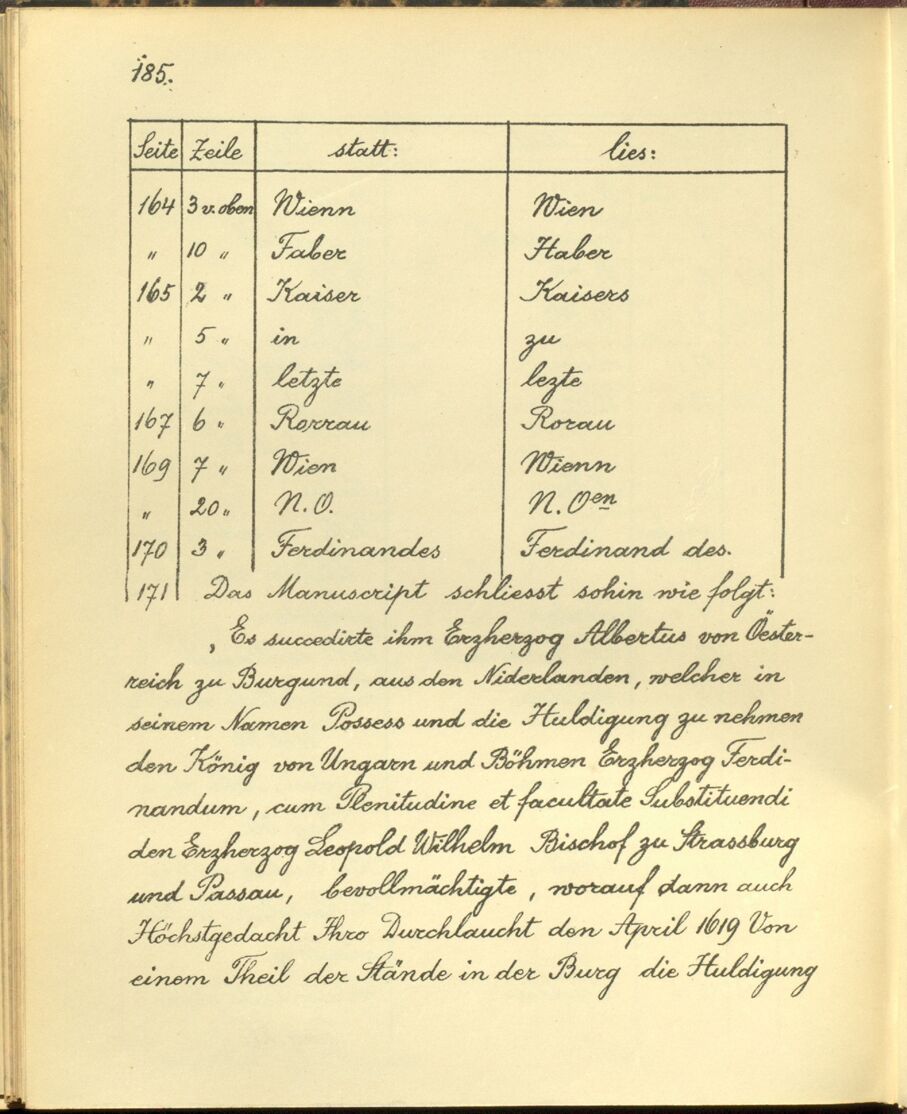 185.
Seite Zeile statt: lies:
164 3 v. oben Wienn Wien
" 10 " Faber Haber
165 2 " Kaiser Kaisers
" 5 " in zu
" 7 " letzte lezte
167 6 " Rorrau Rorau
169 7 " Wien Wienn
" 20 " N. O. N. Oen
170 3 " Ferdinandes Ferdinand des.
171 Das Manuscript schliesst sohin wie folgt:
„Es succedirte ihm Erzherzog Albertus von Öester-
reich zu Burgund, aus den Niderlanden, welcher in
seinem Namen Possess und die Huldigung zu nehmen
den König von Ungarn und Böhmen Erzherzog Ferdi-
nandum, cum Plenitudine et facultate Substituendi
den Erzherzog Leopold Wilhelm Bischof zu Strassburg
und Passau, bevollmächtigte, worauf dann auch
Höchstgedacht Ihro Durchlaucht den April 1619 Von
einem Theil der Stände in der Burg die Huldigung